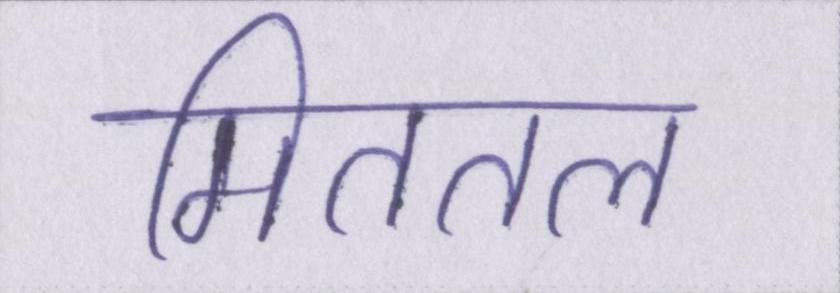 मिततल